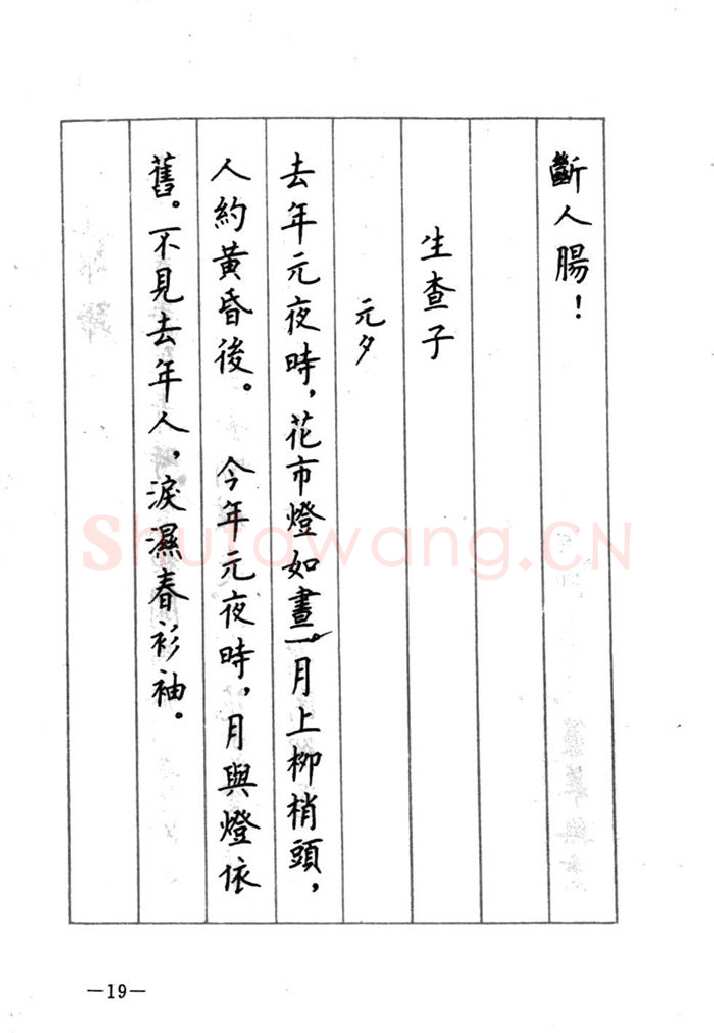 斷人腸！
生查子
元夕
去年元夜時，花市燈如晝。月上柳梢頭，
人約黃昏後。 今年元夜時，月與燈依
舊。不見去年人，淚濕春衫袖。
Shufawang.CN
—19—